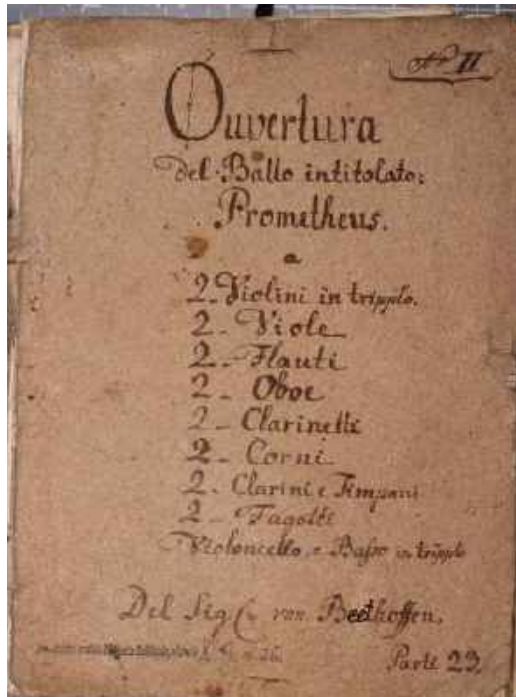 No 11
Ouvertura
del Ballo intitolato:
Prometheus.
a
2. Violini in tripplo.
2 - Viole
2 - Flauti
2 - Oboe
2 - Clarinetti
2 - Corni
2 - Clarini e Timpani
2 - Fagotti
Violoncello e Basso in tripplo
Del Sig. van Beethoffen.
Parti 23.